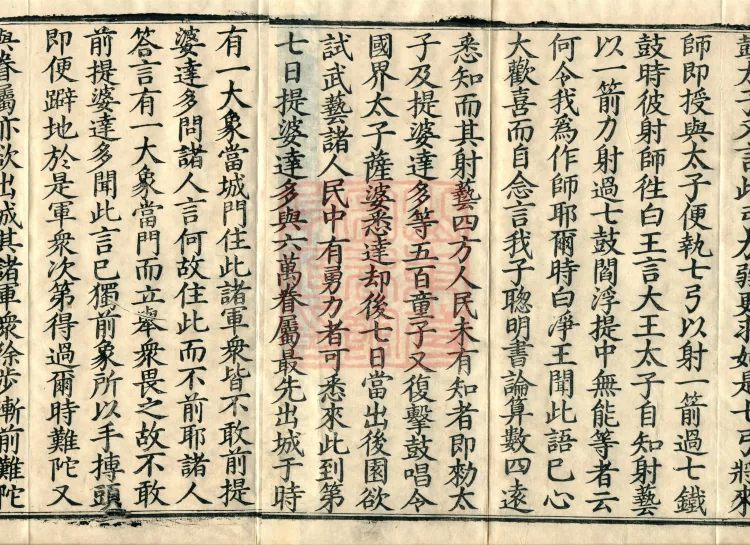 言此弓力弱更求如是七弓將來
師即授與太子便執七弓以射一箭過七鐵
鼓時彼射師徃白王言大王太子自知射藝
以一箭力射過七鼓閻浮提中無能等者云
何令我爲作師耶爾時白淨王聞此語已心
大歡喜而自念言我子聦明書論算數四逺
悉知而其射藝四方人民未有知者即勑太
子及提婆達多等五百童子又復擊鼓唱令
國界太子薩婆悉達却後七日當出後園欲
試武藝諸人民中有勇力者可悉來此到第
七日提婆達多與六萬眷屬最先出城于時
有一大象當城門住此諸軍衆皆不敢前提
婆達多問諸人言何故住此而不前耶諸人
答言有一大象當門而立舉衆畏之故不敢
前提婆達多聞此言已獨前象所以手搏頭
即便躃地於是軍衆次第得過爾時難陀又
與眷屬亦欲出城其諸軍衆徐步漸前難陀